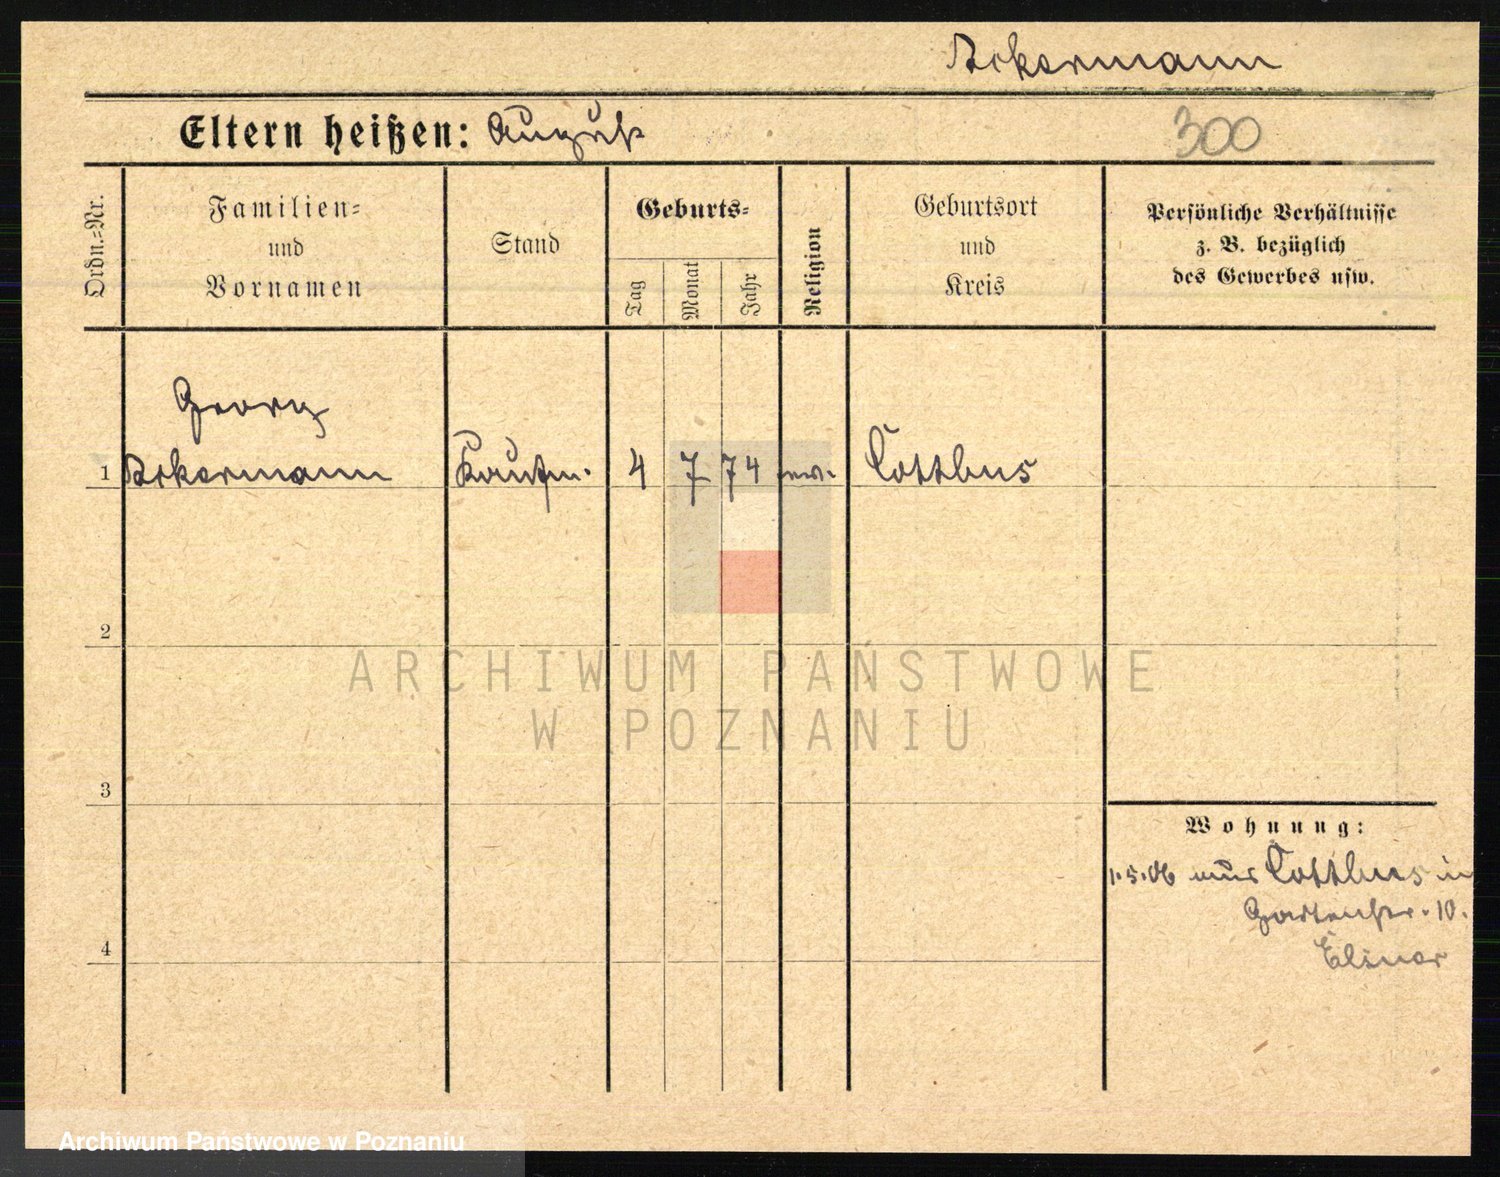 Ackermann
Eltern heißen: August
300
Ordn.=Nr.
Familien=
und
Vornamen
Stand
Geburts=
Tag
Monat
Jahr
Religion
Geburtsort
und
Kreis
Persönliche Verhältnisse
z. B. bezüglich
des Gewerbes usw.
Georg
1 Ackermann Kaufm. 4 7 74 ev. Cottbus
2
ARCHIWUM PAŃSTWOWE
W POZNANIU
3
Wohnung:
1.5.06 aus Cottbus in
Gartenstr. 10.
4
Archiwum Państwowe w Poznaniu